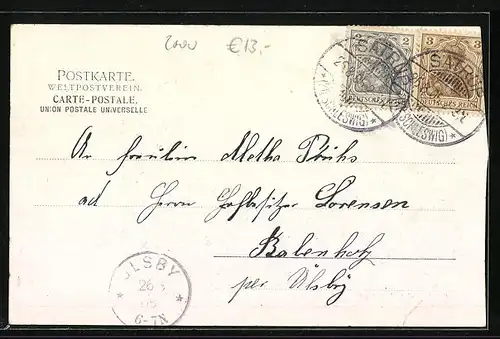 2000 €13.-
POSTKARTE.
WELTPOSTVEREIN.
CARTE-POSTALE.
UNION POSTALE UNIVERSELLE
2 3
DEUTSCHES REICH DEUTSCHES REICH
SATRUP SATRUP
(SCHLESWIG) (SCHLESWIG)
An Fräulein Metha
ad Herrn Hofbesitzer Lorensen
Balenholz
per Ülsby
ÜLSBY
26
6-7N